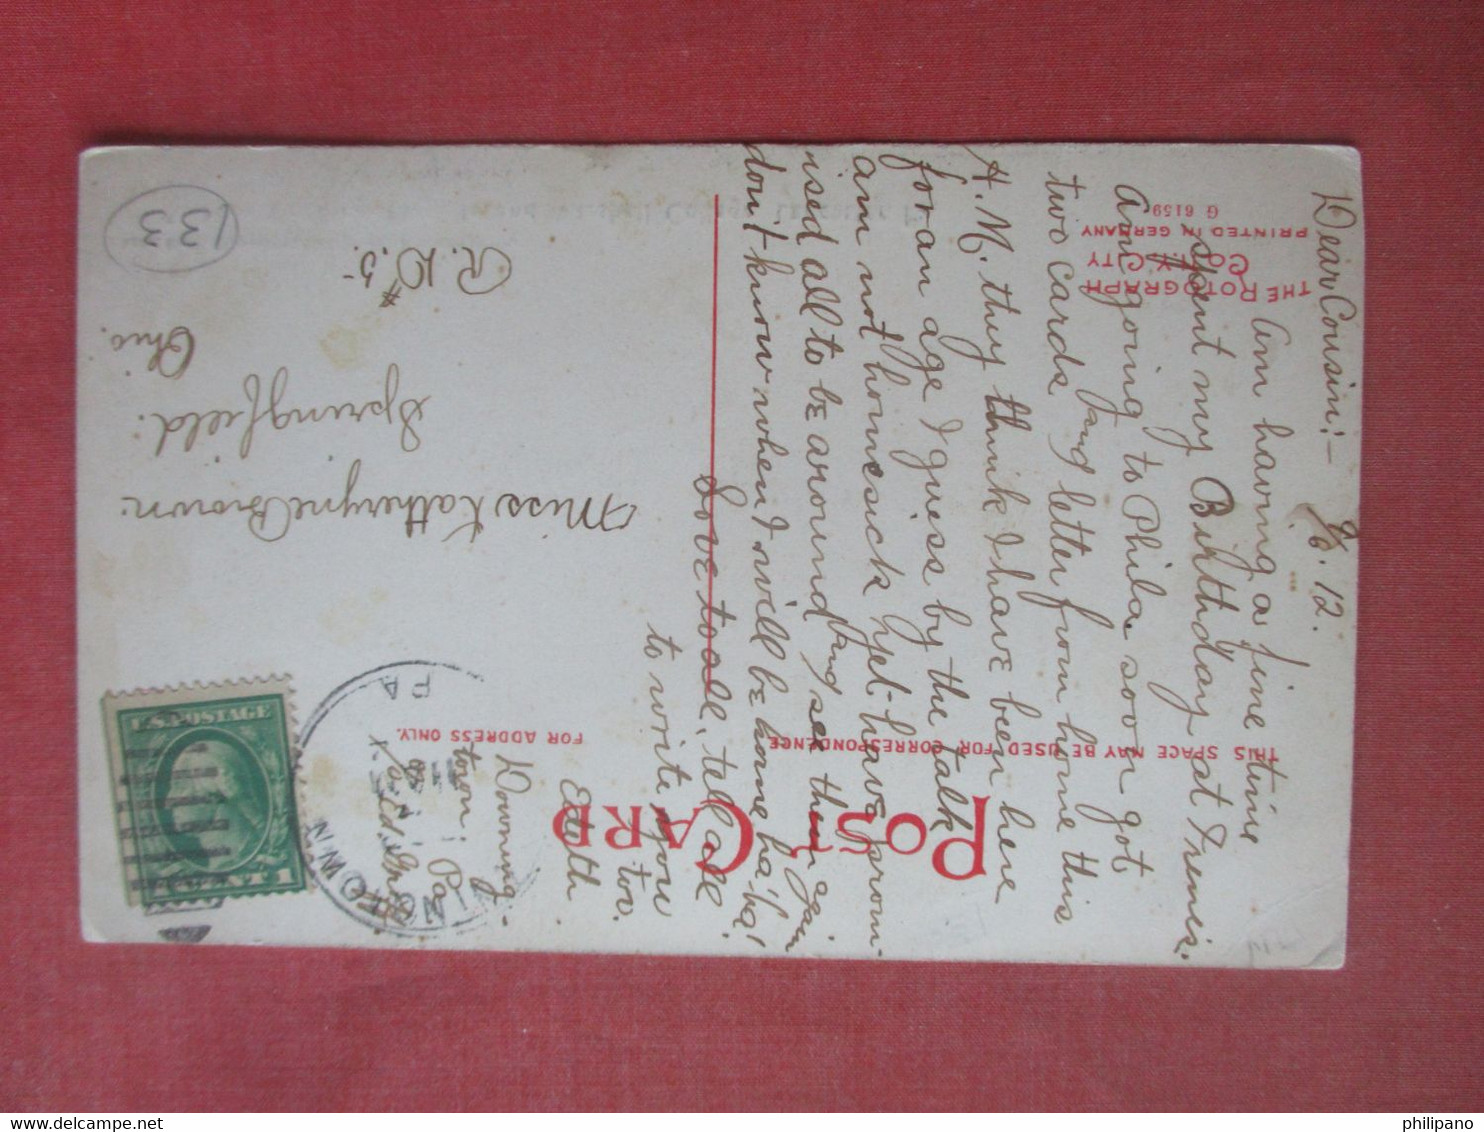 Dear Cousin:— 8/6.12.
Am having a fine time
spent my Birthday at Tremis.
Am going to Philas soon got
two cards & letter from home this
A.M. they think I have been here
for an age I guess by the talk
am not homesick yet— have prom-
ised all to be around & see them again
don't know when I will be home ha! ha!
Love to all, tell all
to write & you
too.
Edith.
Downing-
town, Pa.
POST CARD
THIS SPACE MAY BE USED FOR CORRESPONDENCE
FOR ADDRESS ONLY.
THE ROTOGRAPH
CO., N.Y. CITY
PRINTED IN GERMANY
G 6159
Miss Katheryne Brown.
Springfield.
Ohio.
R.D. #5—
133
U.S. POSTAGE
1 CENT 1
PA
philipano